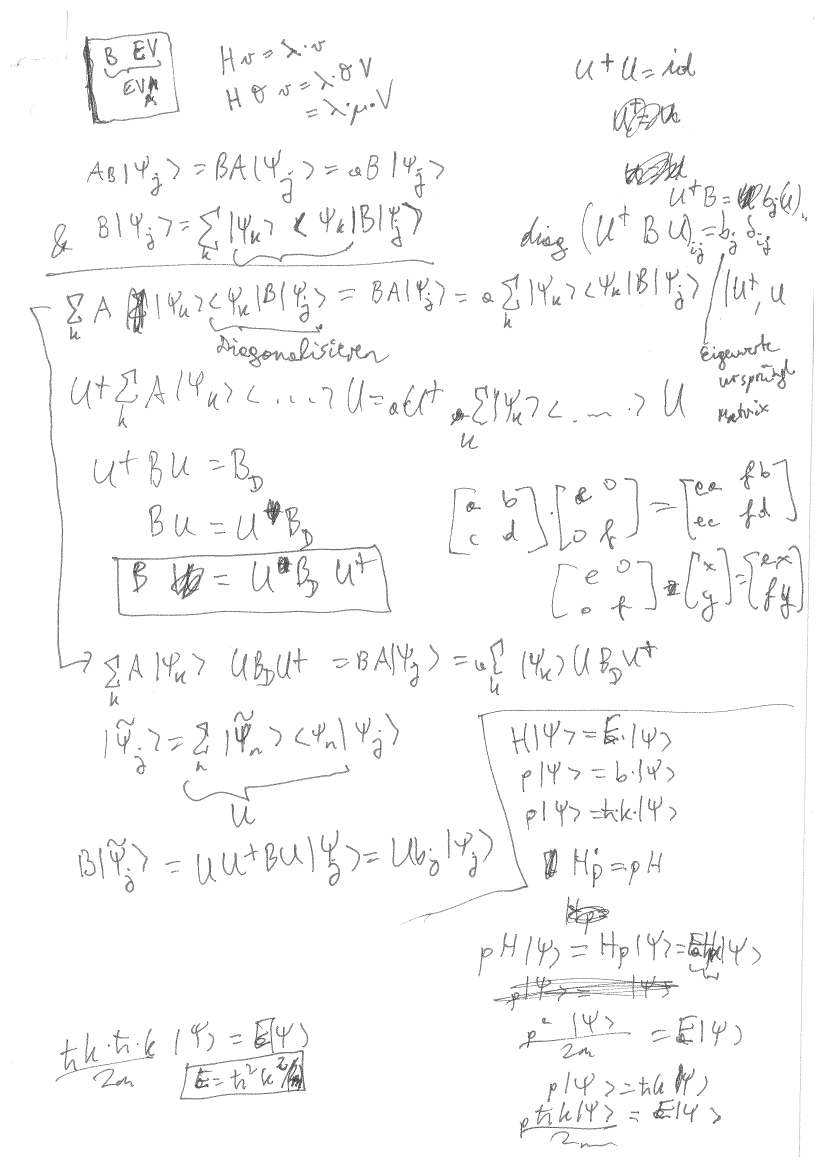 B EV
EV
Hv = λ·v
Hθv = λ·θV
= λ·μ·V
U†U = id
AB|Ψj⟩ = BA|Ψj⟩ = aB|Ψj⟩
U†B = bj(U)
& B|Ψj⟩ = ∑k |Ψk⟩⟨Ψk|B|Ψj⟩
diag (U†BU)ij = bj δij
∑k A |Ψk⟩⟨Ψk|B|Ψj⟩ = BA|Ψj⟩ = a∑k |Ψk⟩⟨Ψk|B|Ψj⟩ / |U†, U
Diagonalisieren
Eigenwerte
ursprüngl
Matrix
U†∑k A|Ψk⟩⟨....⟩U = aU† ∑k|Ψk⟩⟨....⟩U
U†BU = BD
BU = U BD
B = U BD U†
[a b; c d]·[e 0; 0 f] = [ea fb; ec fd]
[e 0; 0 f] [x; y] = [ex; fy]
∑k A|Ψk⟩ UBDU† = BA|Ψj⟩ = a∑k |Ψk⟩UBDU†
|Ψ̃j⟩ = ∑n |Ψ̃n⟩⟨Ψn|Ψj⟩
U
B|Ψ̃j⟩ = UU†BU|Ψj⟩ = Ubj|Ψj⟩
H|Ψ⟩ = E·|Ψ⟩
p|Ψ⟩ = b·|Ψ⟩
p|Ψ⟩ = ħk·|Ψ⟩
Hp = pH
pH|Ψ⟩ = Hp|Ψ⟩ = |Ψ⟩
p² |Ψ⟩ / 2m = E|Ψ⟩
p|Ψ⟩ = ħk|Ψ⟩
pħk|Ψ⟩ / 2m = E|Ψ⟩
ħk·ħ·k / 2m |Ψ⟩ = E|Ψ⟩
E = ħ²k²/